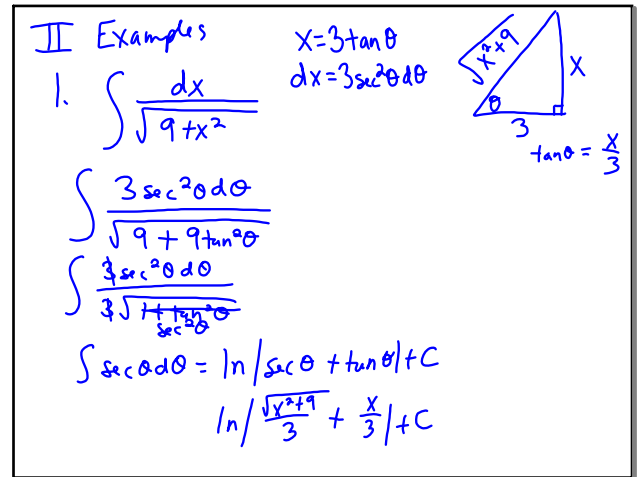 II Examples
x=3tanθ
dx=3sec²θdθ
1. ∫ dx / √(9+x²)
√(x²+9)
x
θ
3
tanθ = x/3
∫ 3sec²θdθ / √(9+9tan²θ)
∫ 3sec²θdθ / 3√(1+tan²θ)
sec²θ
∫secθdθ = ln|secθ + tanθ|+C
ln|√(x²+9)/3 + x/3|+C